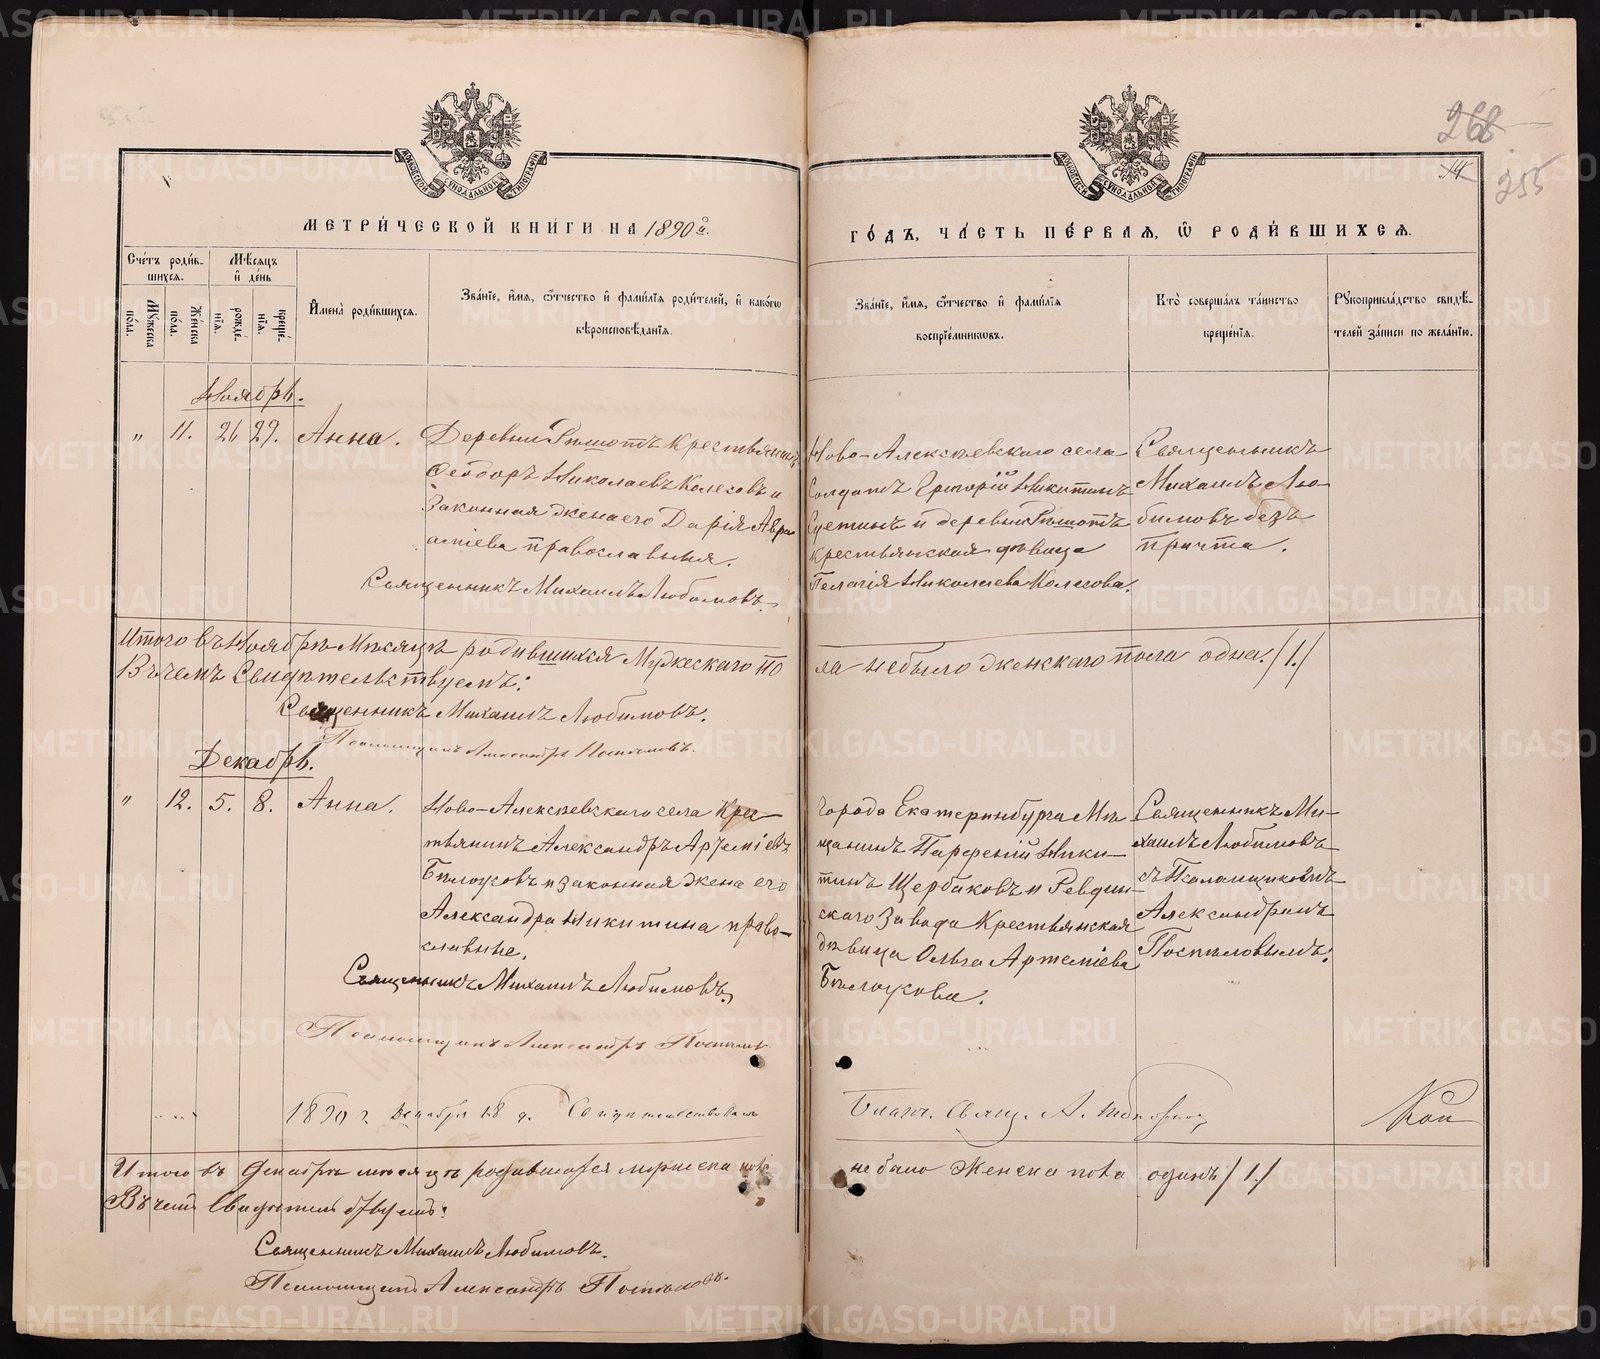 268
255
МЕТРИЧЕСКОЙ КНИГИ НА 1890й.
ГОДЪ, ЧАСТЬ ПЕРВАЯ, Ѡ РОДИВШИХСЯ.
Счетъ родившихся.
Мужеска пола.
Женска пола.
Мѣсяцъ и день
рожденія.
крещенія.
Имена родившихся.
Званіе, имя, ѻтчество и фамилія родителей, и какогѡ
вѣроисповѣданія.
Званіе, имя, ѻтчество и фамилія
воспріемникѡвъ.
Кто совершалъ таинство
крещенія.
Рукоприкладство свидѣ-
телей записи по желанію.
Ноябрь.
" 11. 26 29. Анна.
Деревни Рѣшотъ Крестьянинъ
Ѳеодоръ Николаевъ Колеговъ и
Законная жена его Дарія Авра
аміева православныя.
Священникъ Михаилъ Любимовъ.
Ново-Алексѣевскаго села
Солдатъ Григорій Никитинъ
и деревни Рѣшотъ
крестьянская дѣвица
Пелагія Николаева Колегова.
Священникъ
Михаилъ Лю-
бимовъ безъ
причта.
Итого въ Ноябрѣ Мѣсяцѣ родившихся Мужескаго по
ла небыло женскаго пола одна. /1./
Въ чемъ Свидѣтельствуемъ:
Священникъ Михаилъ Любимовъ.
Псаломщикъ Александръ Поспѣловъ.
Декабрь.
" 12. 5. 8. Анна.
Ново-Алексѣевскаго села Крес-
тьянинъ Александръ Артеміевъ
Бѣлоусовъ и законная жена его
Александра Никитина право-
славные.
Священникъ Михаилъ Любимовъ.
Псаломщикъ Александръ Поспѣловъ
города Екатеринбурга Мѣ
щанинъ Парѳеній Ники-
тинъ Щербаковъ и Ревдин-
скаго Завода Крестьянская
дѣвица Ольга Артеміева
Бѣлоусова.
Священникъ Ми-
хаилъ Любимовъ
съ Псаломщикомъ
Александромъ
Поспѣловымъ.
1890 г. Декабря 18 д. Свидѣтельствовалъ
Благч. Свящ. А.
Итого въ Декабрѣ мѣсяцѣ родившихся мужеска пола
не было Женска пола одинъ /1./
Въ чемъ Свидѣтельствуемъ:
Священникъ Михаилъ Любимовъ.
Псаломщикъ Александръ Поспѣловъ.
METRIKI.GASO-URAL.RU